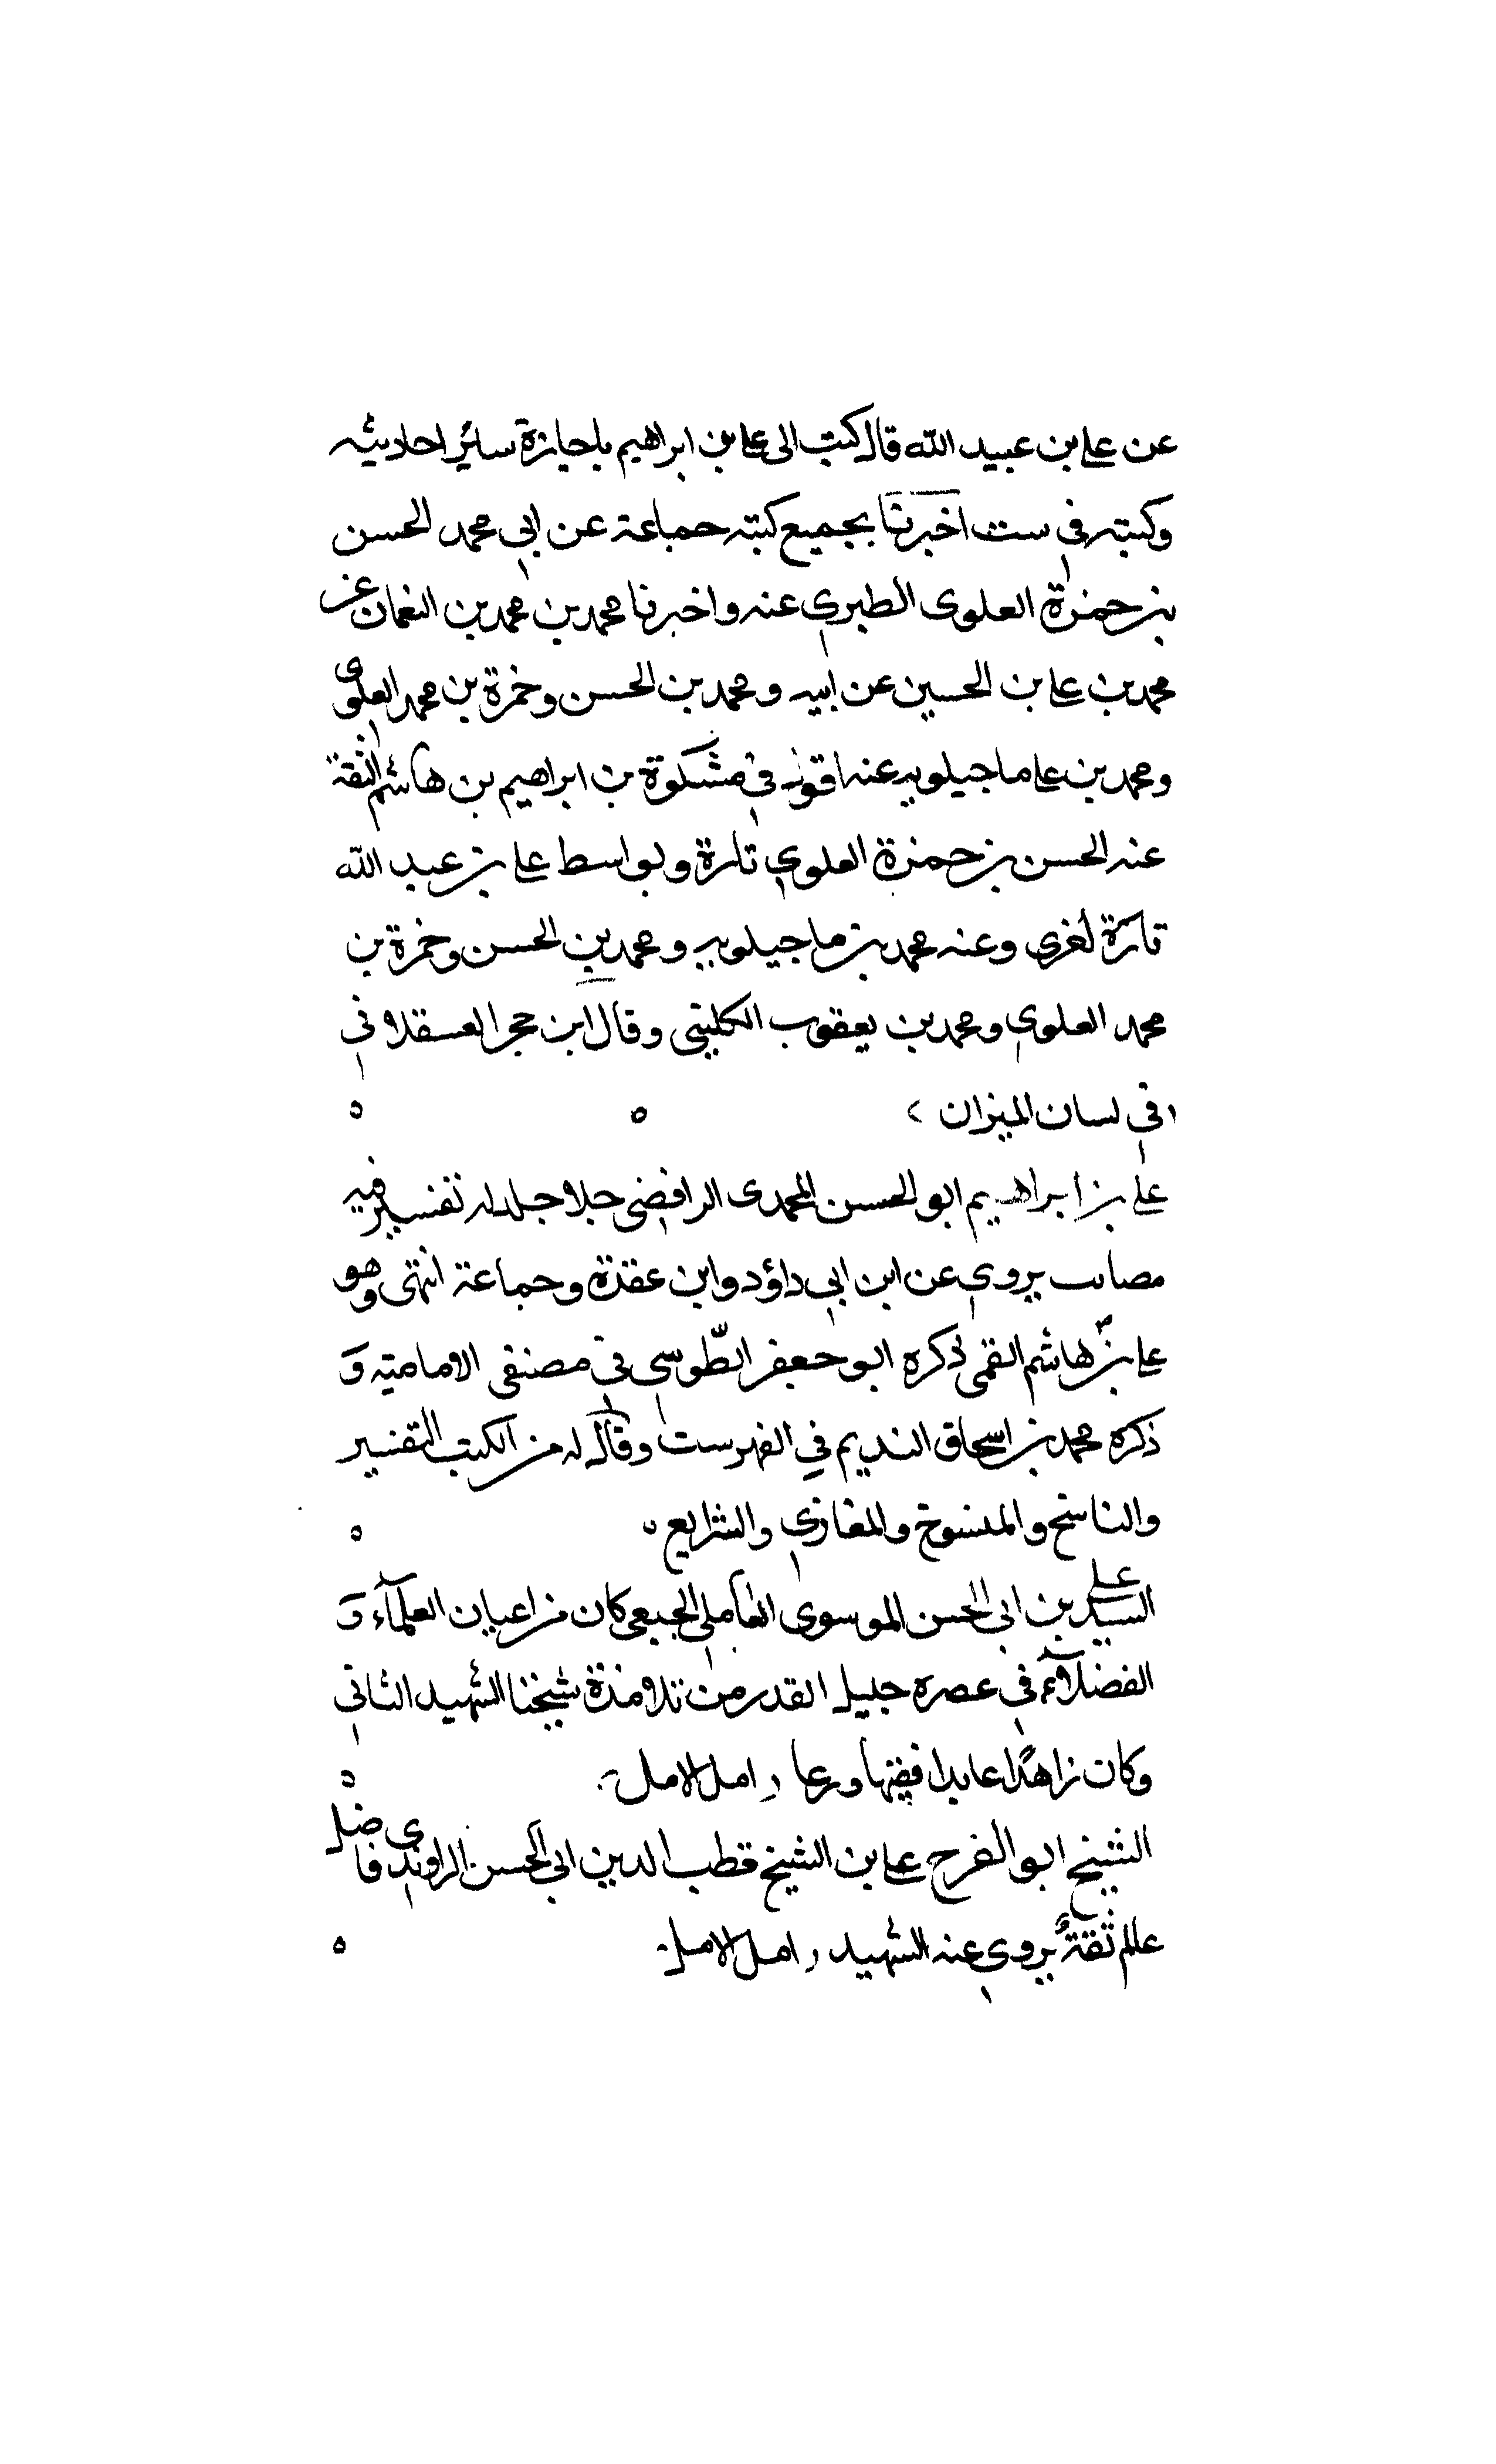 عن علي بن عبيد الله قال كتب الى علي بن ابراهيم باجازة سائر احاديثه
وكتبه في ست اخبرنا بجميع كتبه جماعة عن ابي محمد الحسن
بن حمزة العلوي الطبري عنه واخبرنا محمد بن محمد بن النعمان عن
محمد بن علي بن الحسين عن ابيه ومحمد بن الحسن وحمزة بن محمد العلوي
ومحمد بن علي ماجيلويه عنه اقول في مشكوة بن ابراهيم بن هاشم الثقة
عنه الحسن بن حمزة العلوي تارة وبواسط علي بن عبيد الله
تارة اخرى وعنه محمد بن ماجيلويه ومحمد بن الحسن وحمزة بن
محمد العلوي ومحمد بن يعقوب الكليني وقال ابن حجر العسقلاني
في لسان الميزان
علي بن ابراهيم ابو الحسن المحمدي الرافضي جلد له تفسير فيه
مصائب يروي عن ابن ابي داؤد وابن عقدة وجماعة انتهى وهو
علي بن هاشم القمي ذكره ابو جعفر الطّوسي في مصنفي الامامية وَ
ذكره محمد بن اسحاق النديم في الفهرست وقال له من الكتب التفسير
والناسخ والمنسوخ والمغازي والشرايع
السيد علي بن ابي الحسن الموسوي العاملي الجبعي كان من اعيان العلمآء وَ
الفضلآء في عصره جليل القدر من تلامذة شيخنا الشهيد الثاني
وكان زاهدًا عابدا فقيها ورعا امل الامل
الشيخ ابو الفرج علي بن الشيخ قطب الدين ابي الحسن الراوندي فاضل
عالم ثقةٌ يروي عنه الشهيد امل الامل